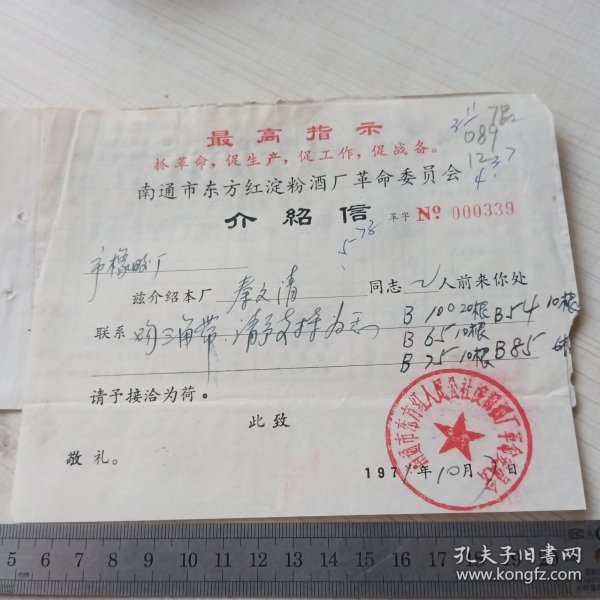 最高指示
抓革命，促生产，促工作，促战备。
南通市东方红淀粉酒厂革命委员会
介紹信 革字 Nº 000339
089
12
市橡胶厂
兹介绍本厂 秦文清 同志 人前来你处
联系 购三角带，请予支持为 B 100 20根 B54 10根
B 65 10根
B 75 10根 B85
请予接洽为荷。
此致
敬礼。
197 年10月 日
5 6 7 8 9 10 11 12 13 14 15 16 17 18 19
孔夫子旧书网
www.kongfz.com